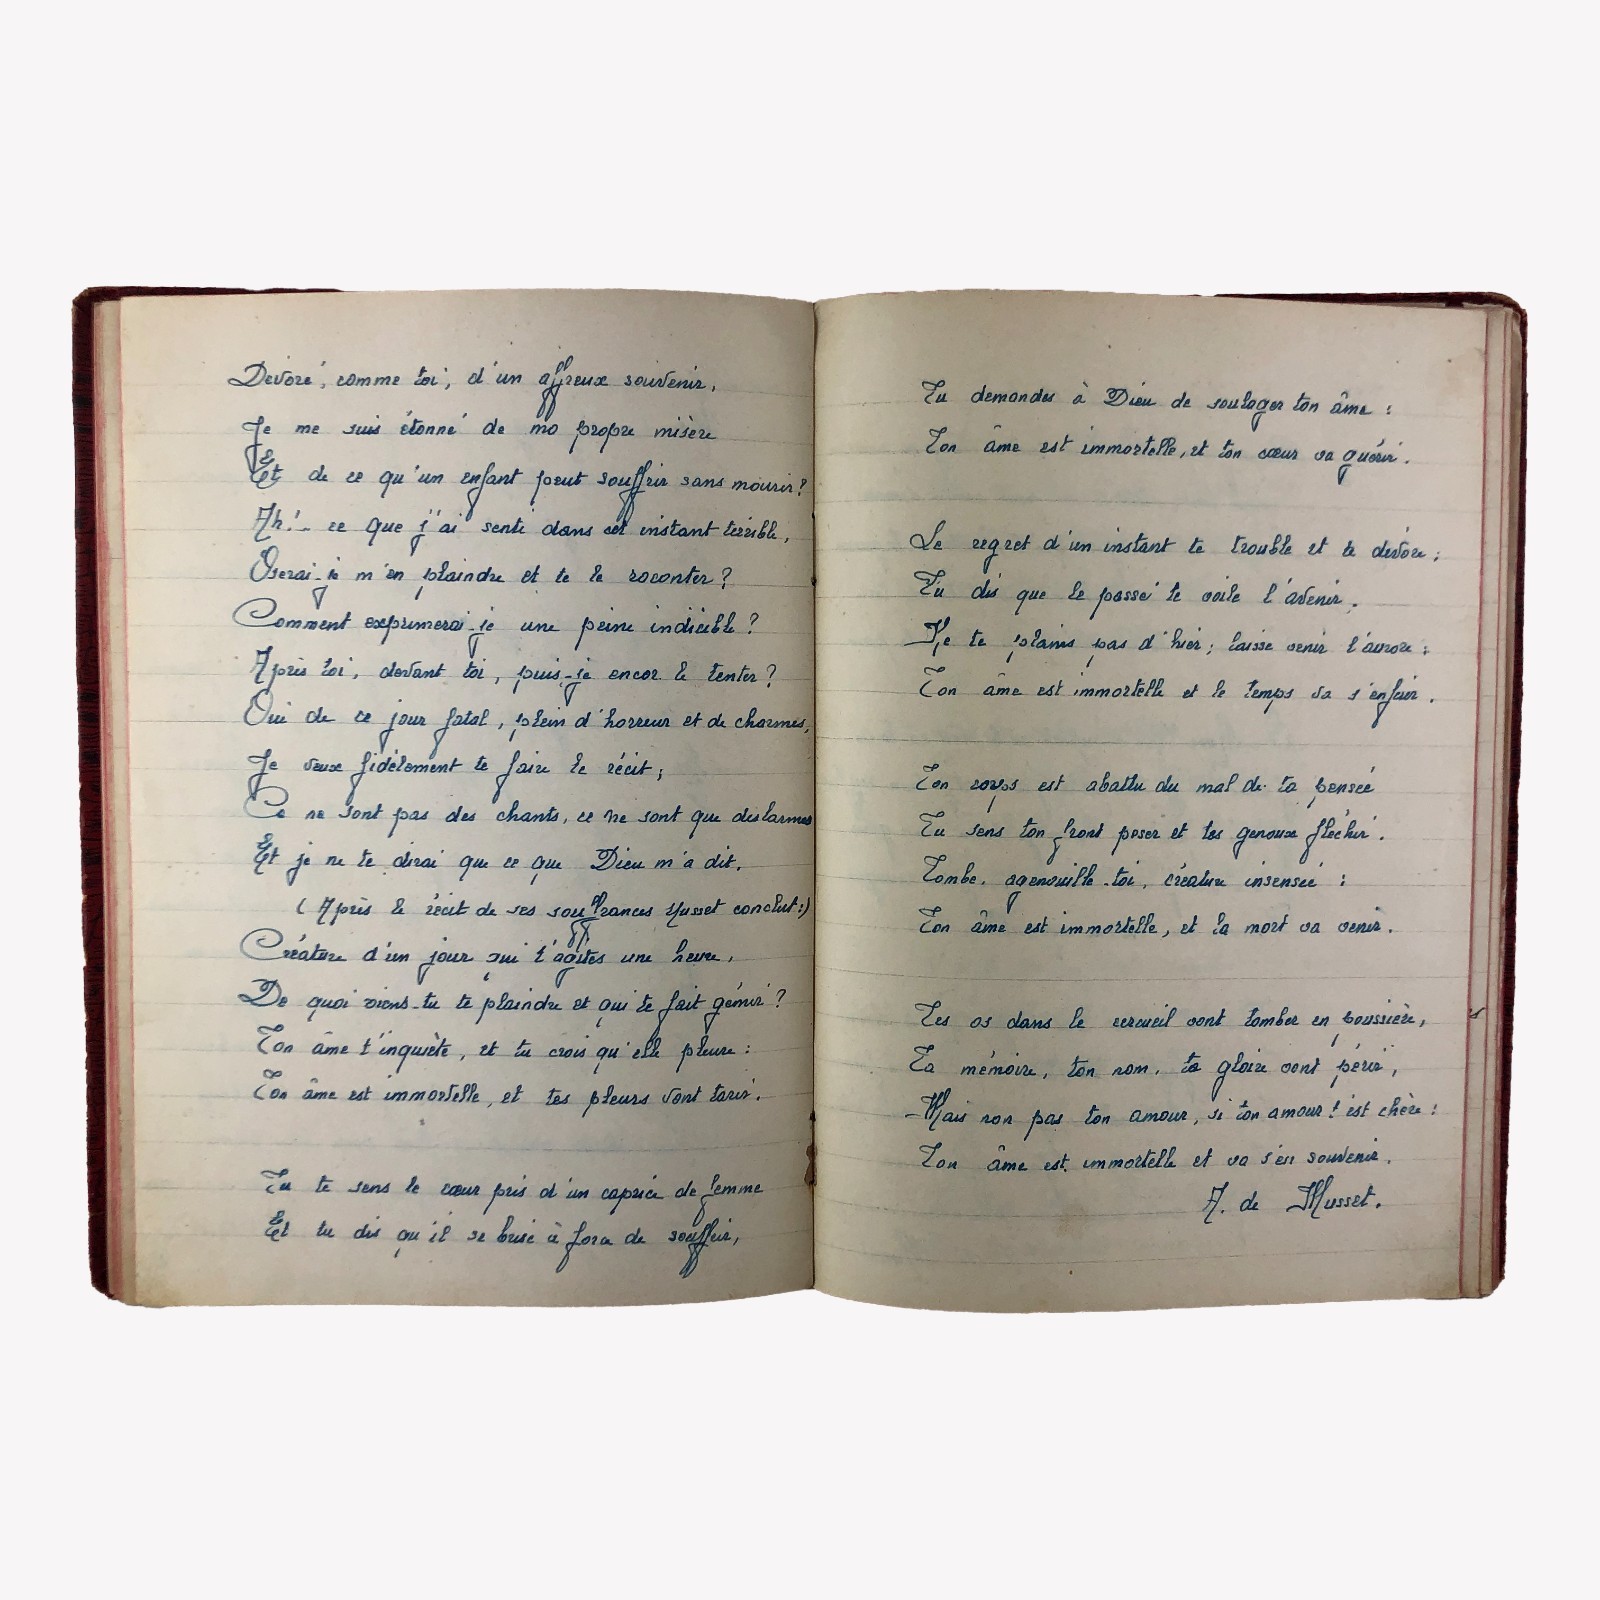 Dévoré, comme toi, d'un affreux souvenir,
Je me suis étonné de ma propre misère
Et de ce qu'un enfant peut souffrir sans mourir?
Ah! - ce que j'ai senti dans cet instant terrible,
Oserai-je m'en plaindre et te le raconter?
Comment exprimerai-je une peine indicible?
Après toi, devant toi, puis-je encor le tenter?
Oui de ce jour fatal, plein d'horreur et de charmes,
Je veux fidèlement te faire le récit;
Ce ne sont pas des chants, ce ne sont que des larmes
Et je ne te dirai que ce que Dieu m'a dit.
(Après le récit de ses souffrances Musset conclut:)
Créature d'un jour qui t'agites une heure,
De quoi viens-tu te plaindre et qui te fait gémir?
Ton âme t'inquiète, et tu crois qu'elle pleure:
Ton âme est immortelle, et tes pleurs vont tarir.
Tu te sens le cœur pris d'un caprice de femme
Et tu dis qu'il se brise à force de souffrir,
Tu demandes à Dieu de soulager ton âme:
Ton âme est immortelle, et ton cœur va guérir.
Le regret d'un instant te trouble et te dévore;
Tu dis que le passé te voile l'avenir.
Ne te plains pas d'hier; laisse venir l'aurore:
Ton âme est immortelle et le temps va s'enfuir.
Ton corps est abattu du mal de ta pensée
Tu sens ton front peser et tes genoux fléchir.
Tombe, agenouille-toi, créature insensée:
Ton âme est immortelle, et la mort va venir.
Tes os dans le cercueil vont tomber en poussière,
Ta mémoire, ton nom, ta gloire vont périr,
Mais non pas ton amour, si ton amour t'est chère:
Ton âme est immortelle et va s'en souvenir.
A. de Musset.